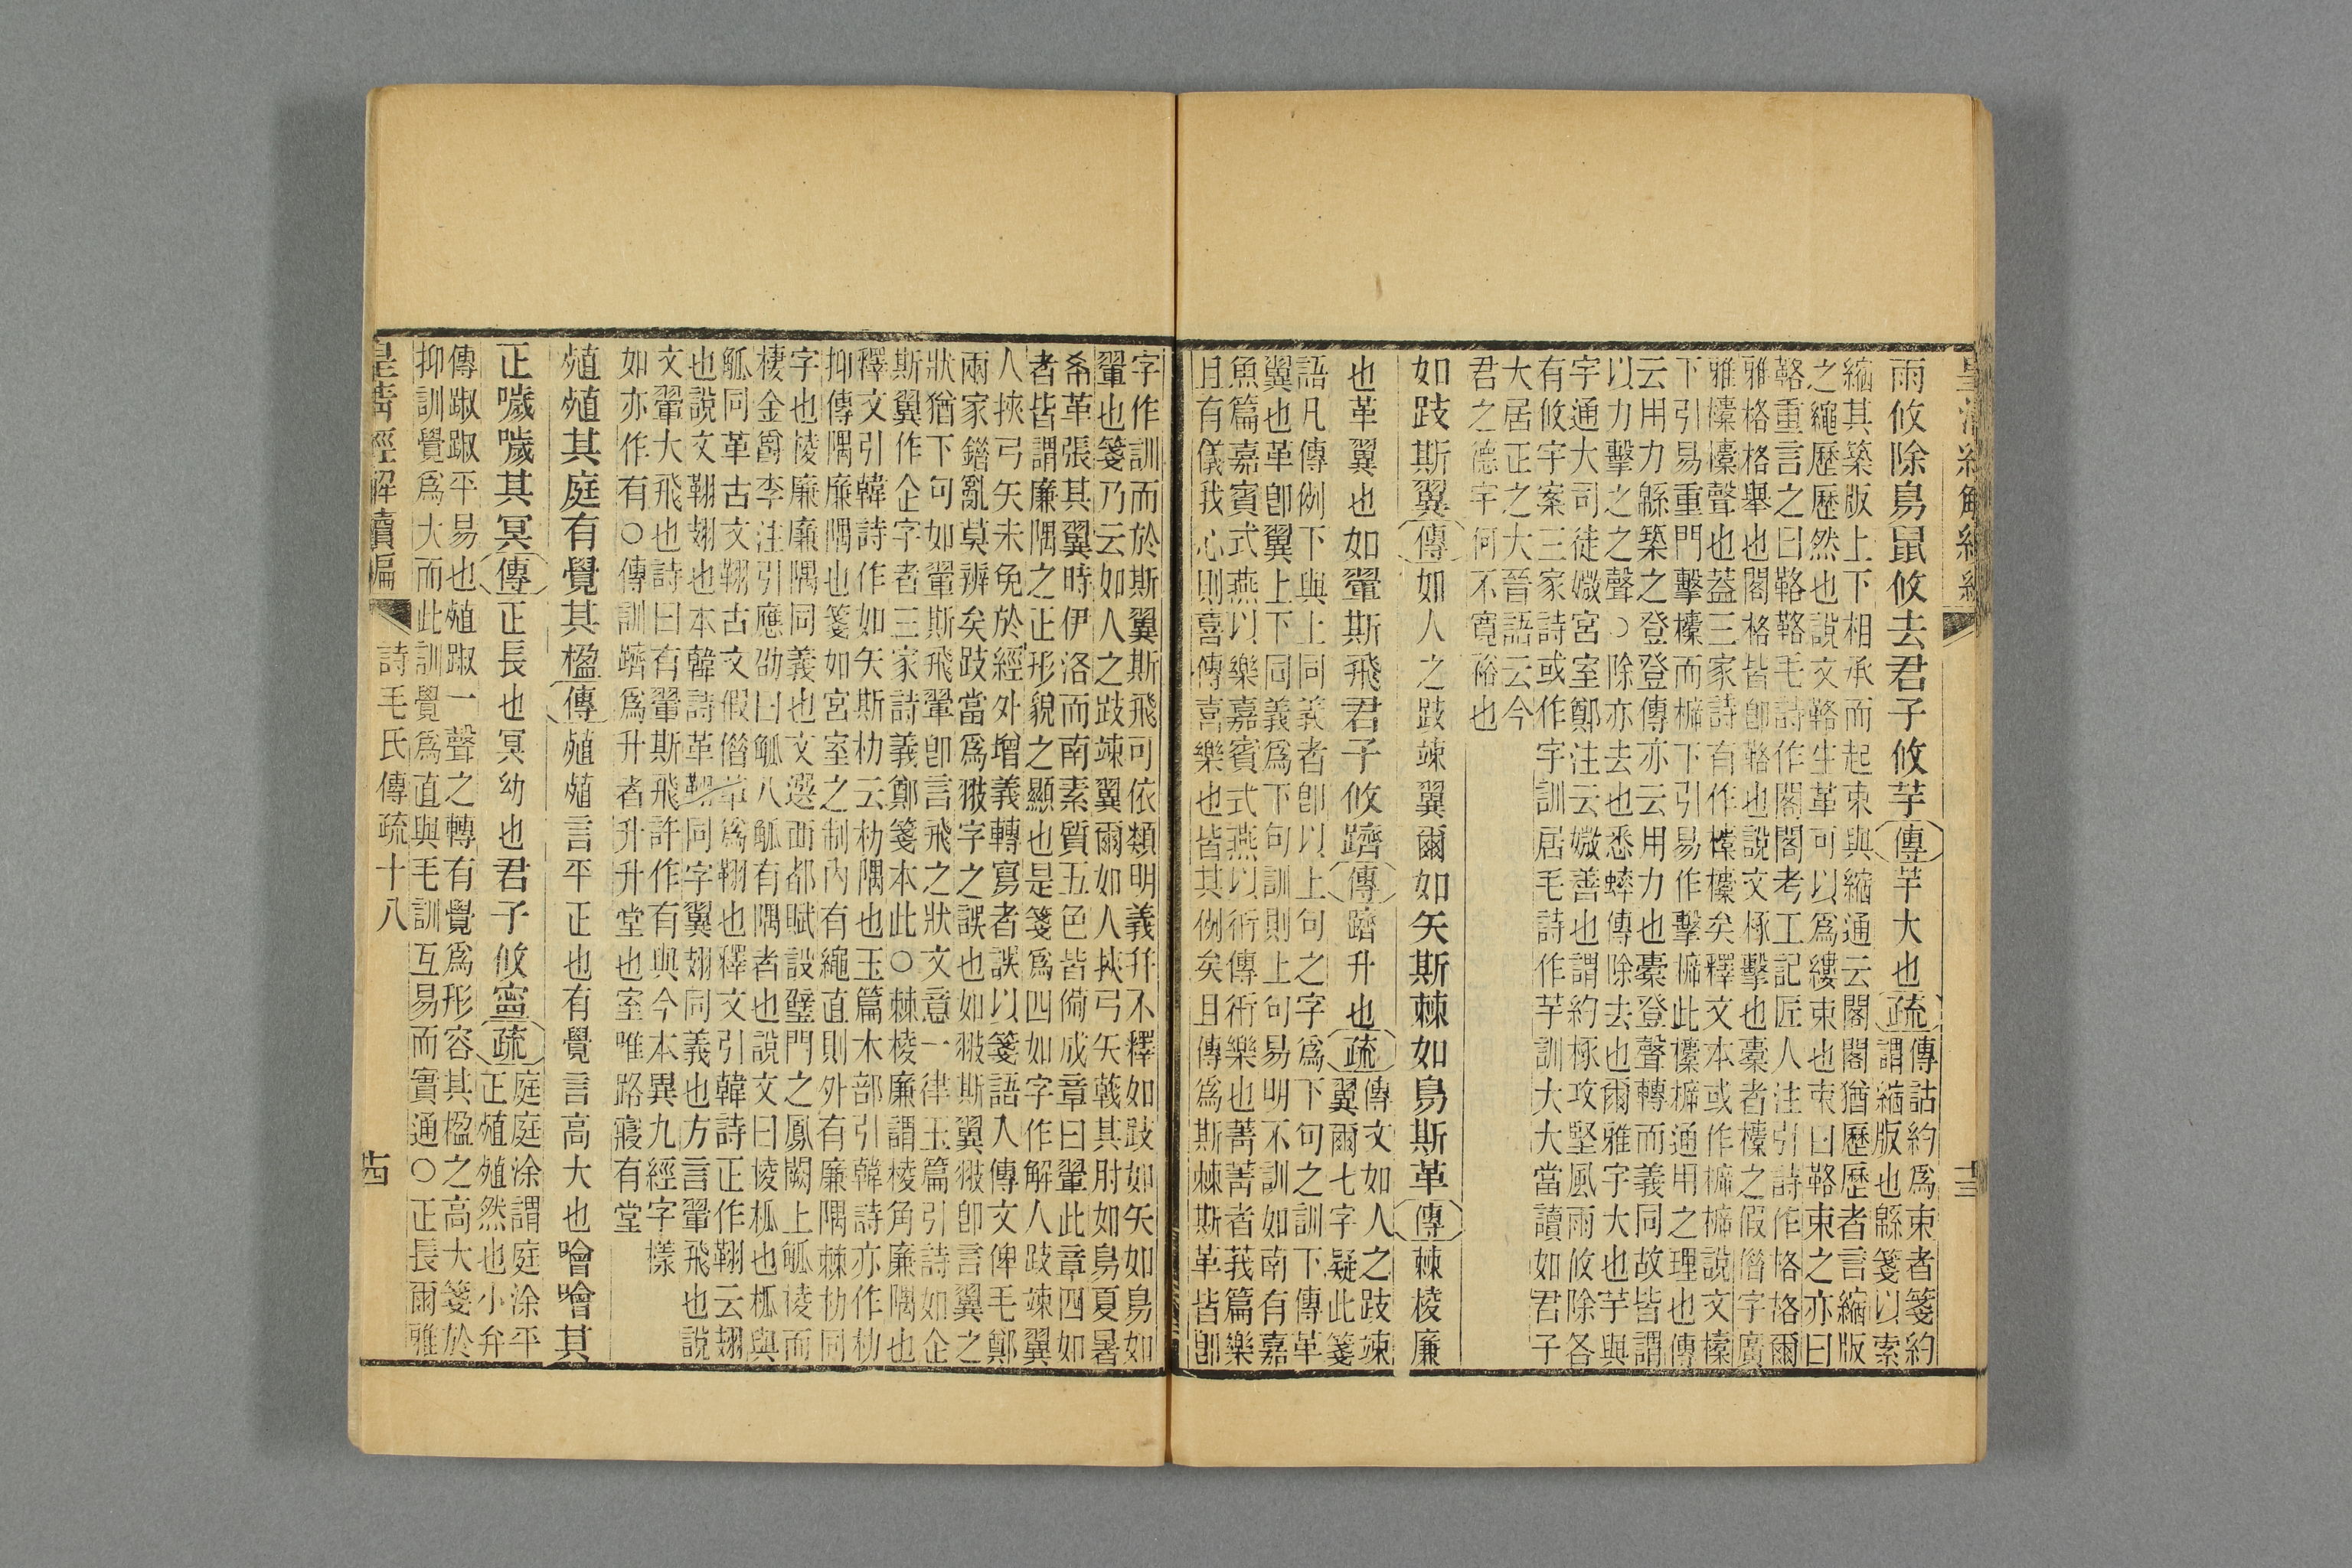 雨攸除鳥鼠攸去君子攸芋傳芋大也疏傳詁約爲束者箋約
謂縮版也緜箋以索
縮其築版上下相承而起束與縮通云閣閣猶歷歷者言縮版
之繩歷歷然也說文䩞生革可以爲縷束也束曰䩞束之亦曰
䩞重言之曰䩞䩞毛詩作閣閣考工記匠人注引詩作格格爾
雅格格舉也閣格皆卽䩞也說文椓擊也橐者㯓之假僭字廣
雅㯓㯓聲也葢三家詩有作㯓㯓矣釋文本或作㯓㯓說文㯓
下引易重門擊㯓而㯓下引易作擊㯓此㯓㯓通用之理也傳
云用力緜築之登登傳亦云用力也橐登聲轉而義同故皆謂
以力擊之之聲○除亦去也悉蟀傳除去也爾雅字大也芋與
宇通大司徒媺宮室鄭注云媺善也謂約椓攻堅風雨攸除各
有攸宇案三家詩或作宇訓居毛詩作芋訓大大當讀如君子
大居正之大晉語云今
君之德宇何不寬裕也
如跂斯翼傳如人之跂竦翼爾如矢斯棘如鳥斯革傳棘棱廉
也革翼也如翬斯飛君子攸躋傳躋升也疏傳文如人之跂竦
翼爾七字疑此箋
語凡傳例下與上同義者卽以上句之字爲下句之訓下傳革
翼也革卽翼上下同義爲下句訓則上句易明不訓如南有嘉
魚篇嘉賓式燕以樂嘉賓式燕以衎傳衎樂也菁菁者莪篇樂
且有儀我心則喜傳喜樂也皆其例矣且傳爲斯棘斯革皆卽
字作訓而於斯翼斯飛可依類明義幷不釋如跂如矢如鳥如
翬也箋乃云如人之跂竦翼爾如人挾弓矢戟其肘如鳥夏暑
希革張其翼時伊洛而南素質五色皆備成章曰翬此章四如
者皆謂廉隅之正形貌之顯也是箋爲四如字作解人跂竦翼
人挾弓矢未免於經外增義轉寫者誤以箋語入傳文俾毛鄭
兩家鐕亂莫辨矣跂當爲翄字之誤也如翄斯翼翄卽言翼之
狀猶下句如翬斯飛翬卽言飛之狀文意一律玉篇引詩如企
斯翼作企字者三家詩義鄭箋本此○棘棱廉謂棱角廉隅也
釋文引韓詩作如矢斯朸云朸隅也玉篇木部引韓詩亦作朸
抑傳隅廉隅也箋如宮室之制內有繩直則外有廉隅棘朸同
字也棱廉廉隅同義也文選西都賦設璧門之鳳闕上觚稜而
棲金爵李注引應劭曰觚八觚有隅者也說文曰棱柧也柧與
觚同革古文翱古文假僭革爲翱也釋文引韓詩正作翱云翅
也說文翱翅也本韓詩革翱同字翼翅同義也方言翬飛也說
文翬大飛也詩曰有翬斯飛許作有與今本異九經字樣
如亦作有○傳訓躋爲升者升升堂也室唯路寢有堂
殖殖其庭有覺其楹傳殖殖言平正也有覺言高大也噲噲其
正噦噦其冥傳正長也冥幼也君子攸寧疏庭庭涂謂庭涂平
正殖殖然也小弁
傳踧踧平易也殖踧一聲之轉有覺爲形容其楹之高大箋於
抑訓覺爲大而此訓覺爲直與毛訓互易而實通○正長爾雅
皇清經解續編　詩毛氏傳疏十八　十四